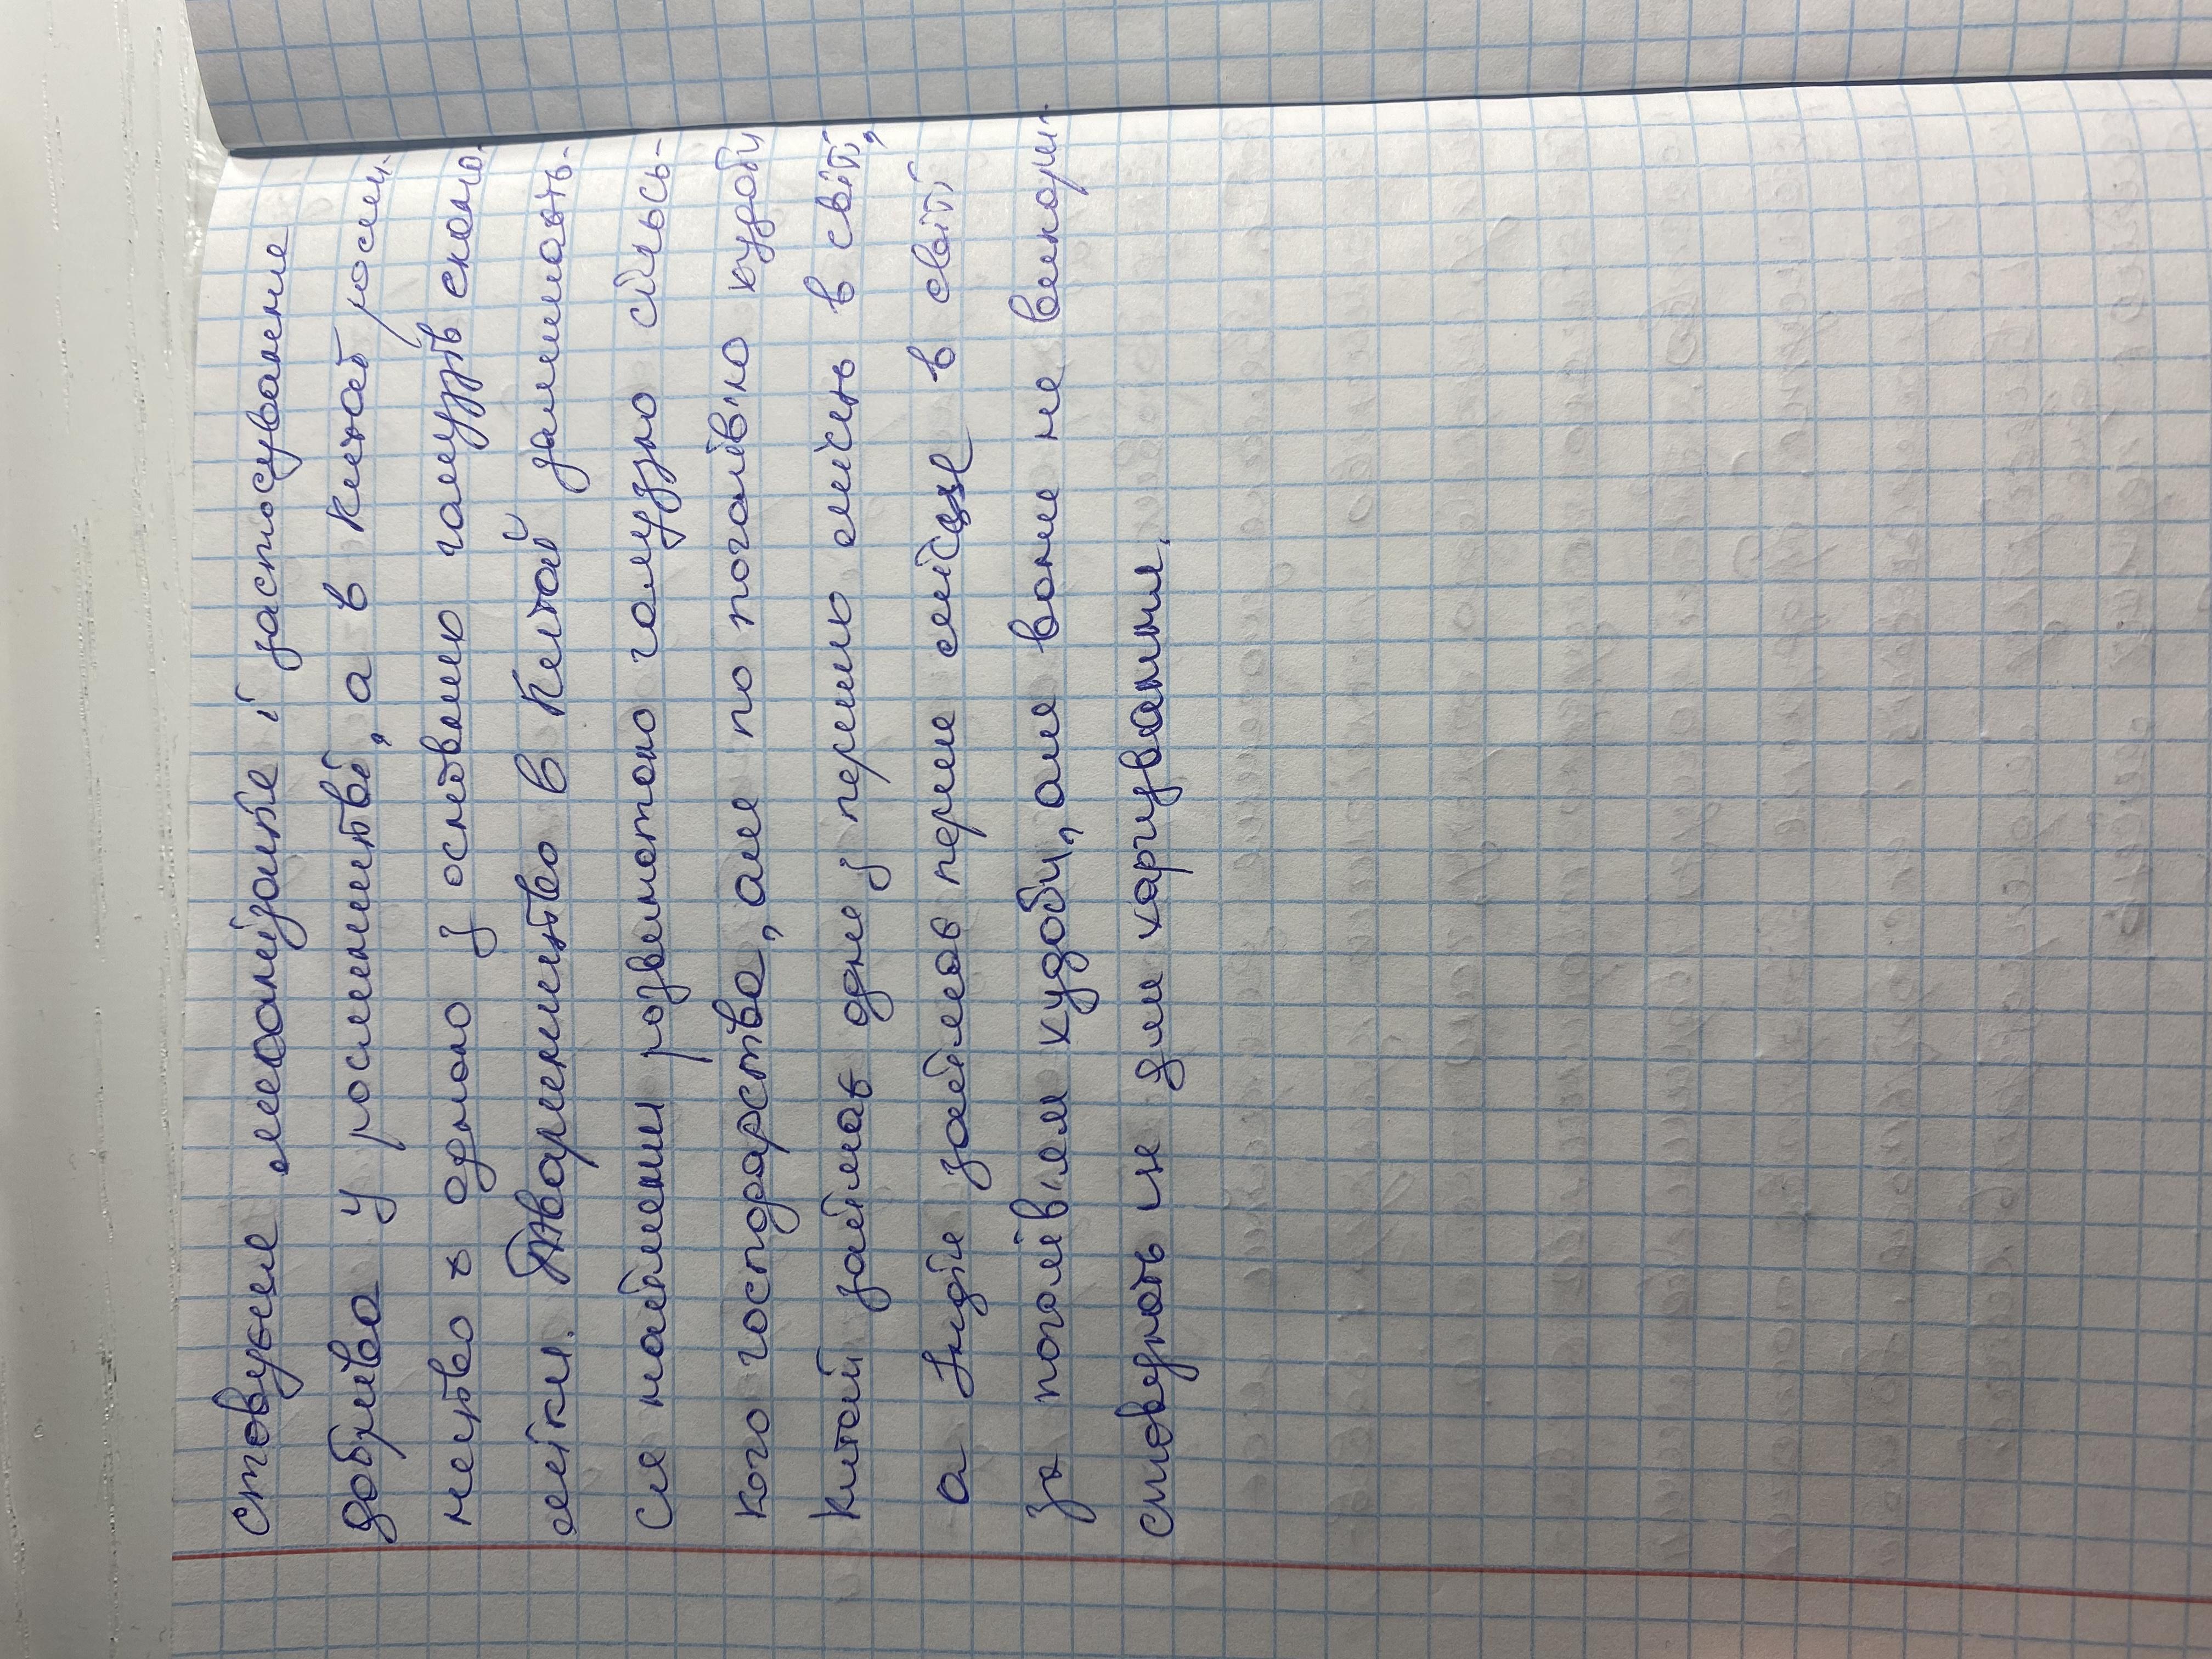 стовуєне механізація і застосування
добрива у рослинитві, а в Китаї росли-
нитво є одною з основною галуззів еконо-
міки. Тваринництво в Китай залишають-
ся найменш розвиненою галуззю сільсь-
кого господарства, але по поголів'ю худоби
Китай займає одне з перших місць в світі,
а Індія займає перше місце в світі
за поголів'ям худоби, але вони не викори-
стовують це для харчування.